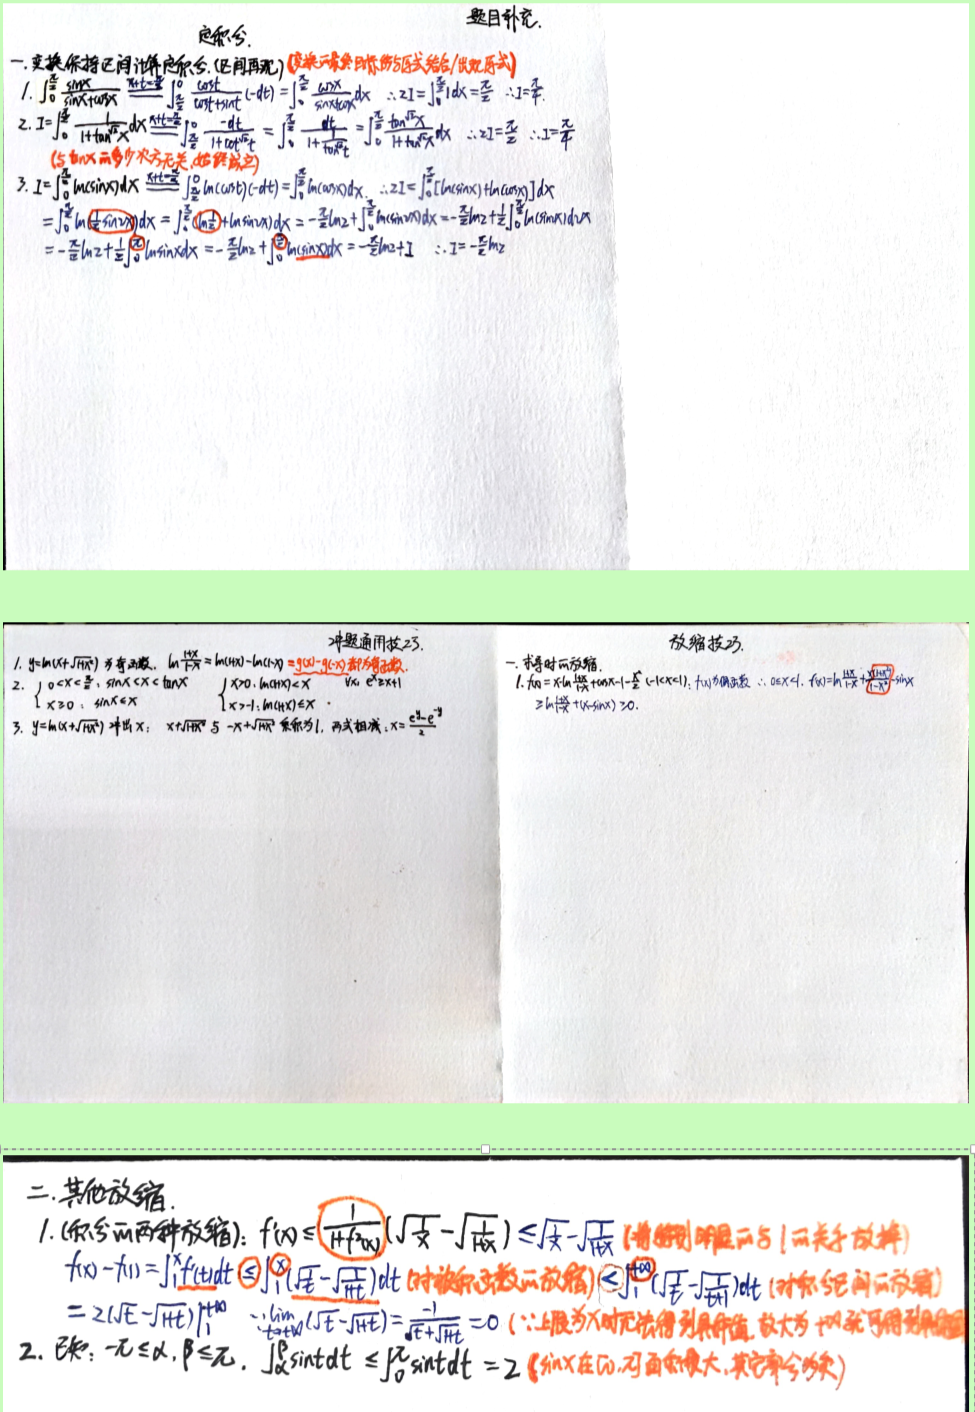 题目补充.
定积分.
一.变换保持区间计算定积分.(区间再现)(变换后最终目标仍与原式结合/出现原式)
1. ∫₀^{π/2} sinx/(sinx+cosx) x+t=π/2 ∫_{π/2}^0 cost/(cost+sint) (-dt) = ∫₀^{π/2} cosx/(sinx+cosx) dx ∴2I=∫₀^{π/2}1dx=π/2 ∴I=π/4.
2. I=∫₀^{π/2} 1/(1+tan^{√2}x) dx x+t=π/2 ∫_{π/2}^0 -dt/(1+cot^{√2}t) = ∫₀^{π/2} dt/(1+1/tan^{√2}t) = ∫₀^{π/2} tan^{√2}x/(1+tan^{√2}x) dx ∴2I=π/2 ∴I=π/4
(与tanx的多少次方无关,始终成立)
3. I=∫₀^{π/2} ln(sinx)dx x+t=π/2 ∫_{π/2}^0 ln(cost)(-dt)=∫₀^{π/2}ln(cosx)dx. ∴2I=∫₀^{π/2}[ln(sinx)+ln(cosx)]dx
=∫₀^{π/2} ln(½sin2x)dx = ∫₀^{π/2}(ln½+lnsin2x)dx = -π/2 ln2+∫₀^{π/2}ln(sin2x)dx = -π/2 ln2+½∫₀^{π/2}ln(sin2x)d2x
= -π/2 ln2+½∫₀^π lnsinxdx = -π/2 ln2+∫₀^{π/2} ln(sinx)dx = -π/2 ln2+I ∴I=-π/2 ln2
冲题通用技巧.
1. y=ln(x+√(1+x²))为奇函数. ln (1+x)/(1-x) = ln(1+x)-ln(1-x) =g(x)-g(-x)都为奇函数.
2. { 0<x<π/2: sinx<x<tanx { x>0: ln(1+x)<x ∀x, e^x≥x+1
x≥0: sinx≤x x>-1: ln(1+x)≤x.
3. y=ln(x+√(1+x²)) 冲出x: x+√(1+x²) 与 -x+√(1+x²) 乘积为1, 两式相减: x=(e^y-e^{-y})/2
放缩技巧.
一.求导时的放缩.
1. f(x)=x·ln (1+x)/(1-x)+cosx-1-x²/2 (-1<x<1), f(x)为偶函数 ∴0≤x<1, f'(x)=ln (1+x)/(1-x)+x(1+x²)/(1-x²)-sinx
≥ln (1+x)/(1-x)+(x-sinx)≥0.
二.其他放缩.
1.(积分的两种放缩): f'(x)≤ 1/(1+f²(x)) (√(1/x)-√(1/(1+x))) ≤√(1/x)-√(1/(1+x)) 明显的与1的关系放掉)
f(x)-f(1)=∫₁^x f'(t)dt ≤∫₁^x(√(1/t)-√(1/(1+t)))dt(对被积函数的放缩)≤∫₁^{+∞}(√(1/t)-√(1/(t+1)))dt(对积分区间的放缩)
=2(√t-√(1+t))|₁^{+∞} ∵lim_{t→+∞}(√t-√(1+t))= -1/(√t+√(1+t)) =0 (∵上限为x时无法得到具体值,放大为+∞就可得到具体值
2. 已知: -π≤α,β≤π. ∫_α^β sintdt ≤∫₀^π sintdt =2 (sinx在[0,π]面积最大,其它部分为负)